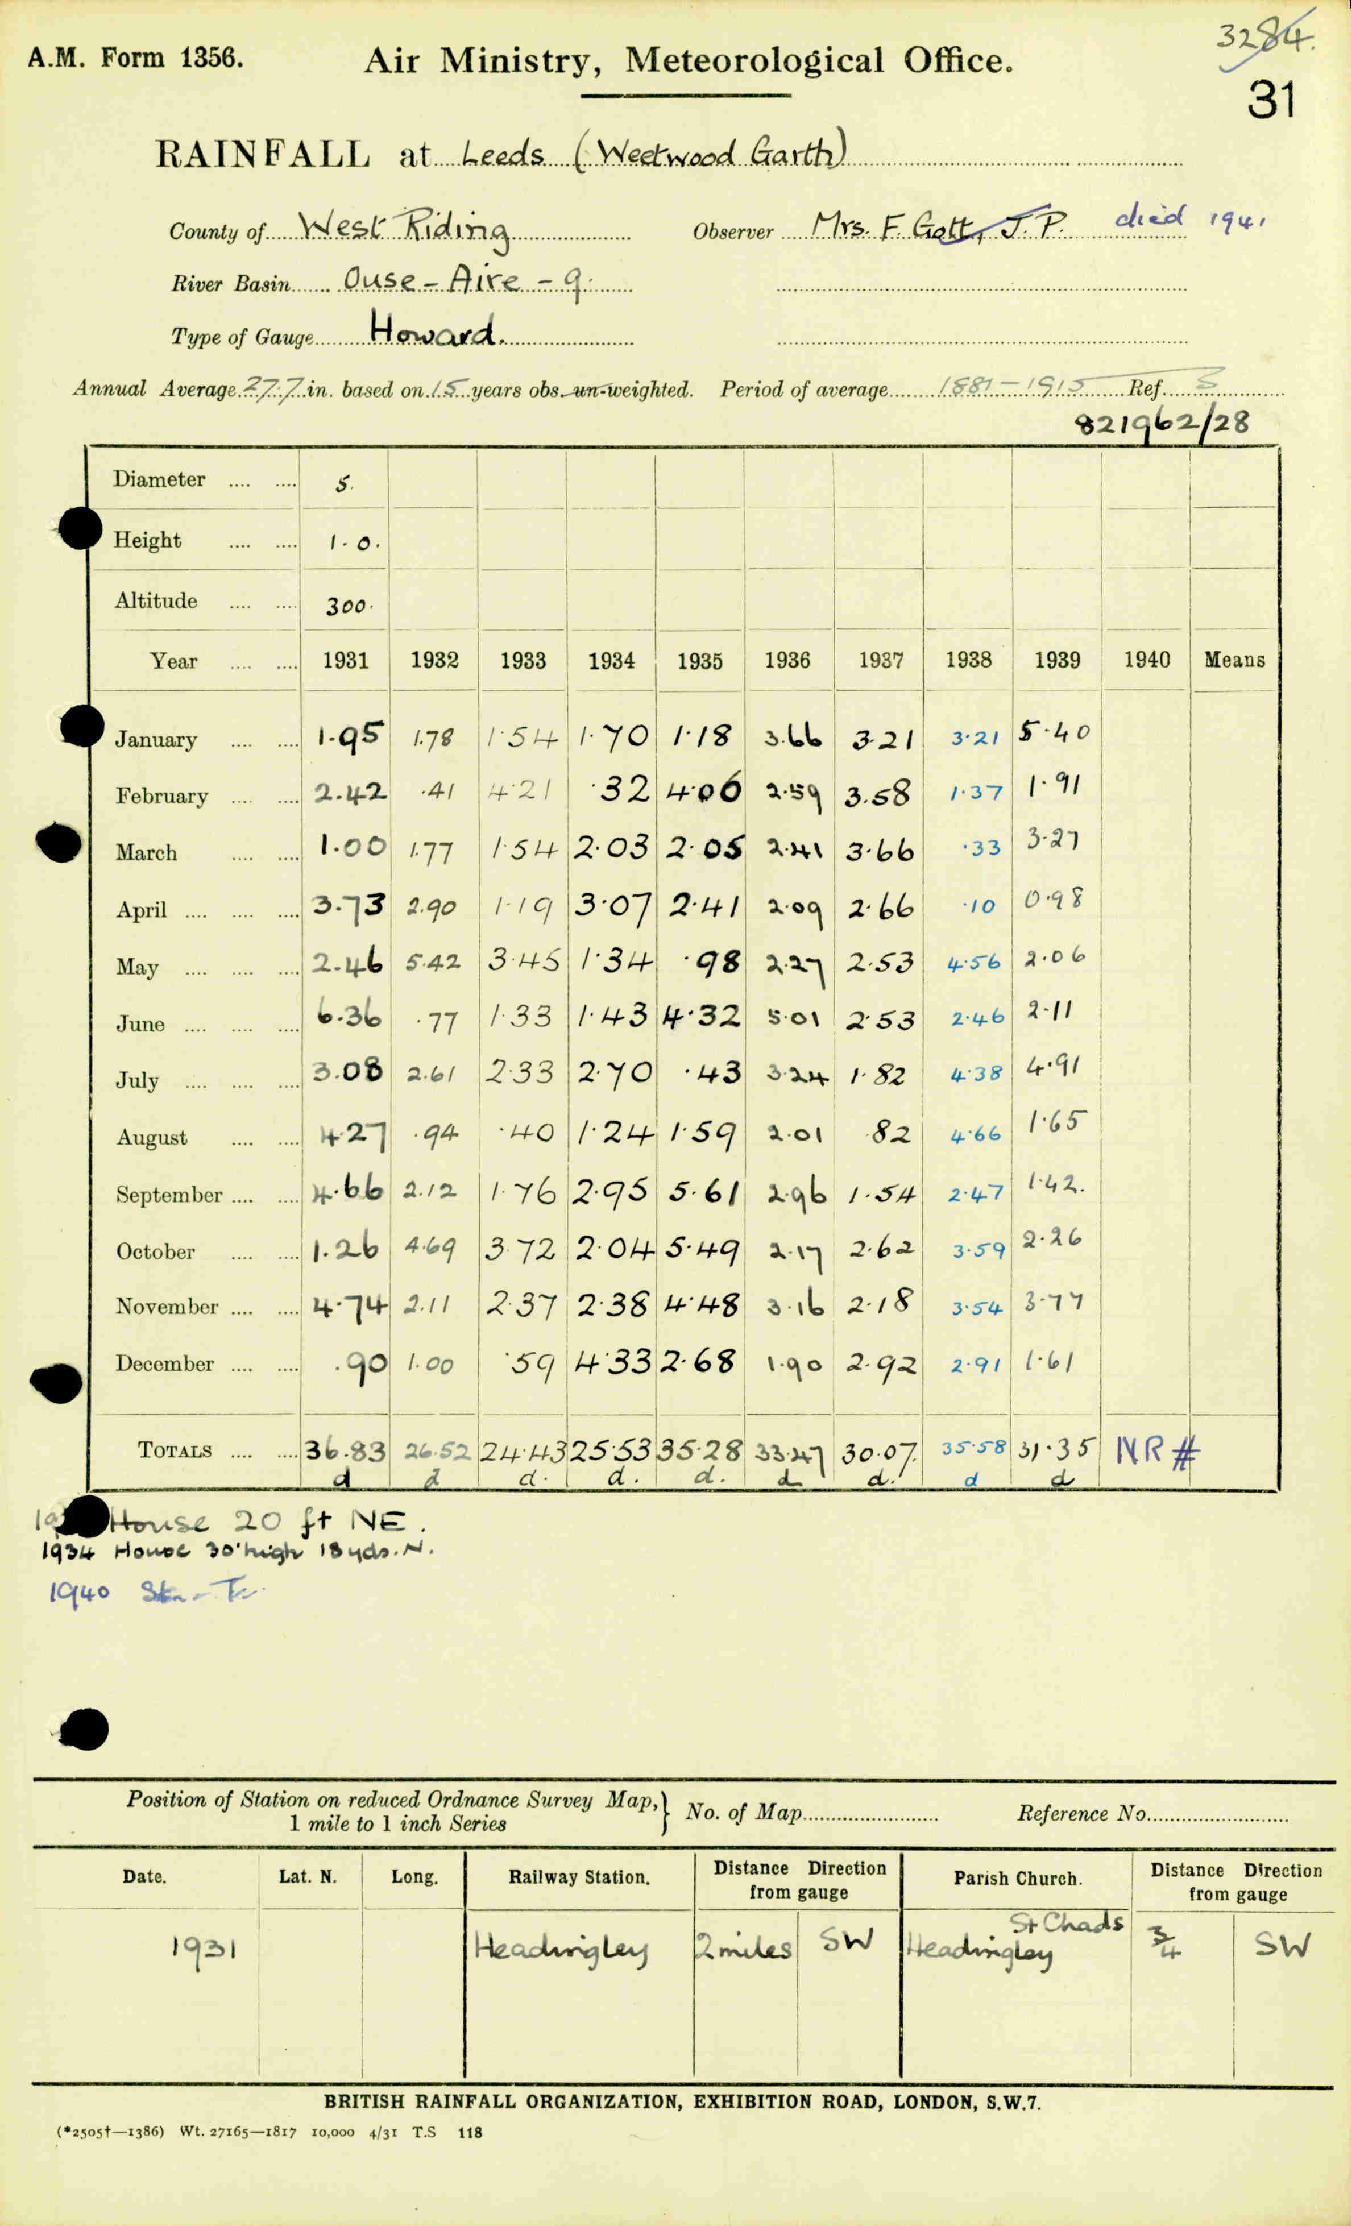 3284.
A.M. Form 1356. Air Ministry, Meteorological Office.
31
RAINFALL at Leeds (Weetwood Garth)
County of West Riding Observer Mrs. F. Gott, J. P. died 1941
River Basin Ouse - Aire - 9.
Type of Gauge Howard.
Annual Average 27.7 in. based on 15 years obs. un-weighted. Period of average 1881-1915 Ref. 3
821962/28
Diameter .... .... 5.
Height .... .... 1.0.
Altitude .... .... 300.
Year .... .... 1931 1932 1933 1934 1935 1936 1937 1938 1939 1940 Means
January .... .... 1.95 1.78 1.54 1.70 1.18 3.66 3.21 3.21 5.40
February .... .... 2.42 .41 4.21 .32 4.06 2.59 3.58 1.37 1.91
March .... .... 1.00 1.77 1.54 2.03 2.05 2.41 3.66 .33 3.27
April .... .... .... 3.73 2.90 1.19 3.07 2.41 2.09 2.66 .10 0.98
May .... .... .... 2.46 5.42 3.45 1.34 .98 2.27 2.53 4.56 2.06
June .... .... .... 6.36 .77 1.33 1.43 4.32 5.01 2.53 2.46 2.11
July .... .... .... 3.08 2.61 2.33 2.70 .43 3.24 1.82 4.38 4.91
August .... .... 4.27 .94 .40 1.24 1.59 2.01 .82 4.66 1.65
September .... .... 4.66 2.12 1.76 2.95 5.61 2.96 1.54 2.47 1.42.
October .... .... 1.26 4.69 3.72 2.04 5.49 2.17 2.62 3.59 2.26
November .... .... 4.74 2.11 2.37 2.38 4.48 3.16 2.18 3.54 3.77
December .... .... .90 1.00 .59 4.33 2.68 1.90 2.92 2.91 1.61
TOTALS .... .... 36.83 26.52 24.43 25.53 35.28 33.47 30.07. 35.58 31.35 NR #
d d d. d. d. d d. d d
House 20 ft NE.
1934 House 30' high 18 yds. N.
1940
Position of Station on reduced Ordnance Survey Map, } No. of Map Reference No.
1 mile to 1 inch Series
Date. Lat. N. Long. Railway Station. Distance Direction from gauge Parish Church. Distance Direction from gauge
1931 Headingley 2 miles SW Headingley St Chads 3/4 SW
BRITISH RAINFALL ORGANIZATION, EXHIBITION ROAD, LONDON, S.W.7.
(*2505†—1386) Wt. 27165—1817 10,000 4/31 T.S 118